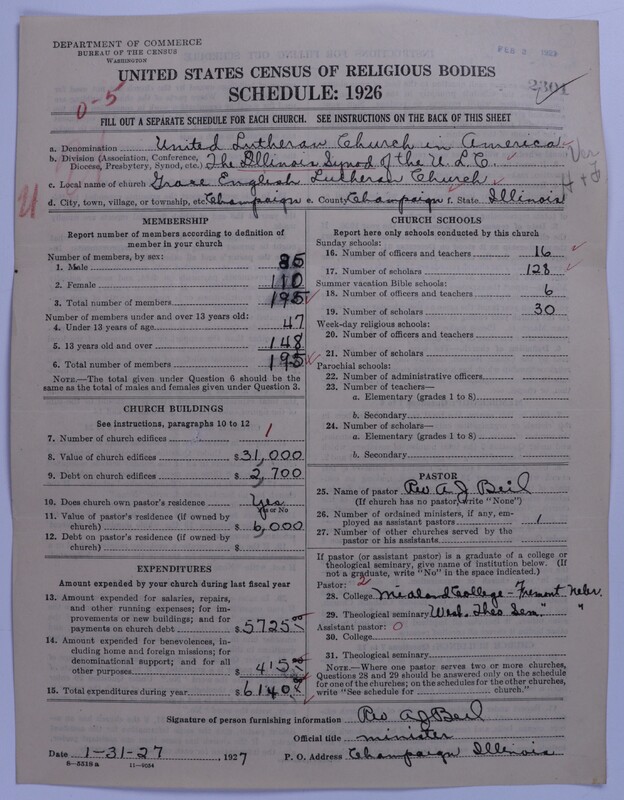 DEPARTMENT OF COMMERCE
BUREAU OF THE CENSUS
WASHINGTON
UNITED STATES CENSUS OF RELIGIOUS BODIES
SCHEDULE: 1926
2301
0-5
FILL OUT A SEPARATE SCHEDULE FOR EACH CHURCH. SEE INSTRUCTIONS ON THE BACK OF THIS SHEET
a. Denomination United Lutheran Church in America
b. Division (Association, Conference, Diocese, Presbytery, Synod, etc.) The Illinois Synod of the U.L.C.
c. Local name of church Grace English Lutheran Church
d. City, town, village, or township, etc. Champaign e. County Champaign f. State Illinois
MEMBERSHIP
Report number of members according to definition of
member in your church
Number of members, by sex:
1. Male 85
2. Female 110
3. Total number of members 195
Number of members under and over 13 years old:
4. Under 13 years of age 47
5. 13 years old and over 148
6. Total number of members 195
NOTE.—The total given under Question 6 should be
same as the total of males and females given under Question 3.
CHURCH BUILDINGS
See instructions, paragraphs 10 to 12
7. Number of church edifices 1
8. Value of church edifices $31,000
9. Debt on church edifices $2,700
10. Does church own pastor's residence? Yes
Yes or No
11. Value of pastor's residence (if owned by
church) $6,000
12. Debt on pastor's residence (if owned by
church) $
EXPENDITURES
Amount expended by your church during last fiscal year
13. Amount expended for salaries, repairs,
and other running expenses; for im-
provements or new buildings; and for
payments on church debt $5725.00
14. Amount expended for benevolences, in-
cluding home and foreign missions; for
denominational support; and for all
other purposes $415.00
15. Total expenditures during year $6140.00
CHURCH SCHOOLS
Report here only schools conducted by this church
Sunday schools:
16. Number of officers and teachers 16
17. Number of scholars 128
Summer vacation Bible schools:
18. Number of officers and teachers 6
19. Number of scholars 30
Week-day religious schools:
20. Number of officers and teachers
21. Number of scholars
Parochial schools:
22. Number of administrative officers
23. Number of teachers—
a. Elementary (grades 1 to 8)
b. Secondary
24. Number of scholars—
a. Elementary (grades 1 to 8)
b. Secondary
PASTOR
25. Name of pastor Rev A. J. Beil
(If church has no pastor, write "None")
26. Number of ordained ministers, if any, em-
ployed as assistant pastors
27. Number of other churches served by the
pastor or his assistants
If pastor (or assistant pastor) is a graduate of a college or
theological seminary, give name of institution below. (If
not a graduate, write "No" in the space indicated.)
Pastor: 2
28. College Midland College - Fremont Nebr.
29. Theological seminary West. Theo Sem " "
Assistant pastor: 0
30. College
31. Theological seminary
NOTE.—Where one pastor serves two or more churches,
Questions 28 and 29 should be answered only on the schedule
for one of the churches; on the schedules for the other churches,
write "See schedule for church."
Signature of person furnishing information Rev A J Beil
Official title minister
Date 1-31-27, 1927 P. O. Address Champaign Illinois
8-5318a 11-9034